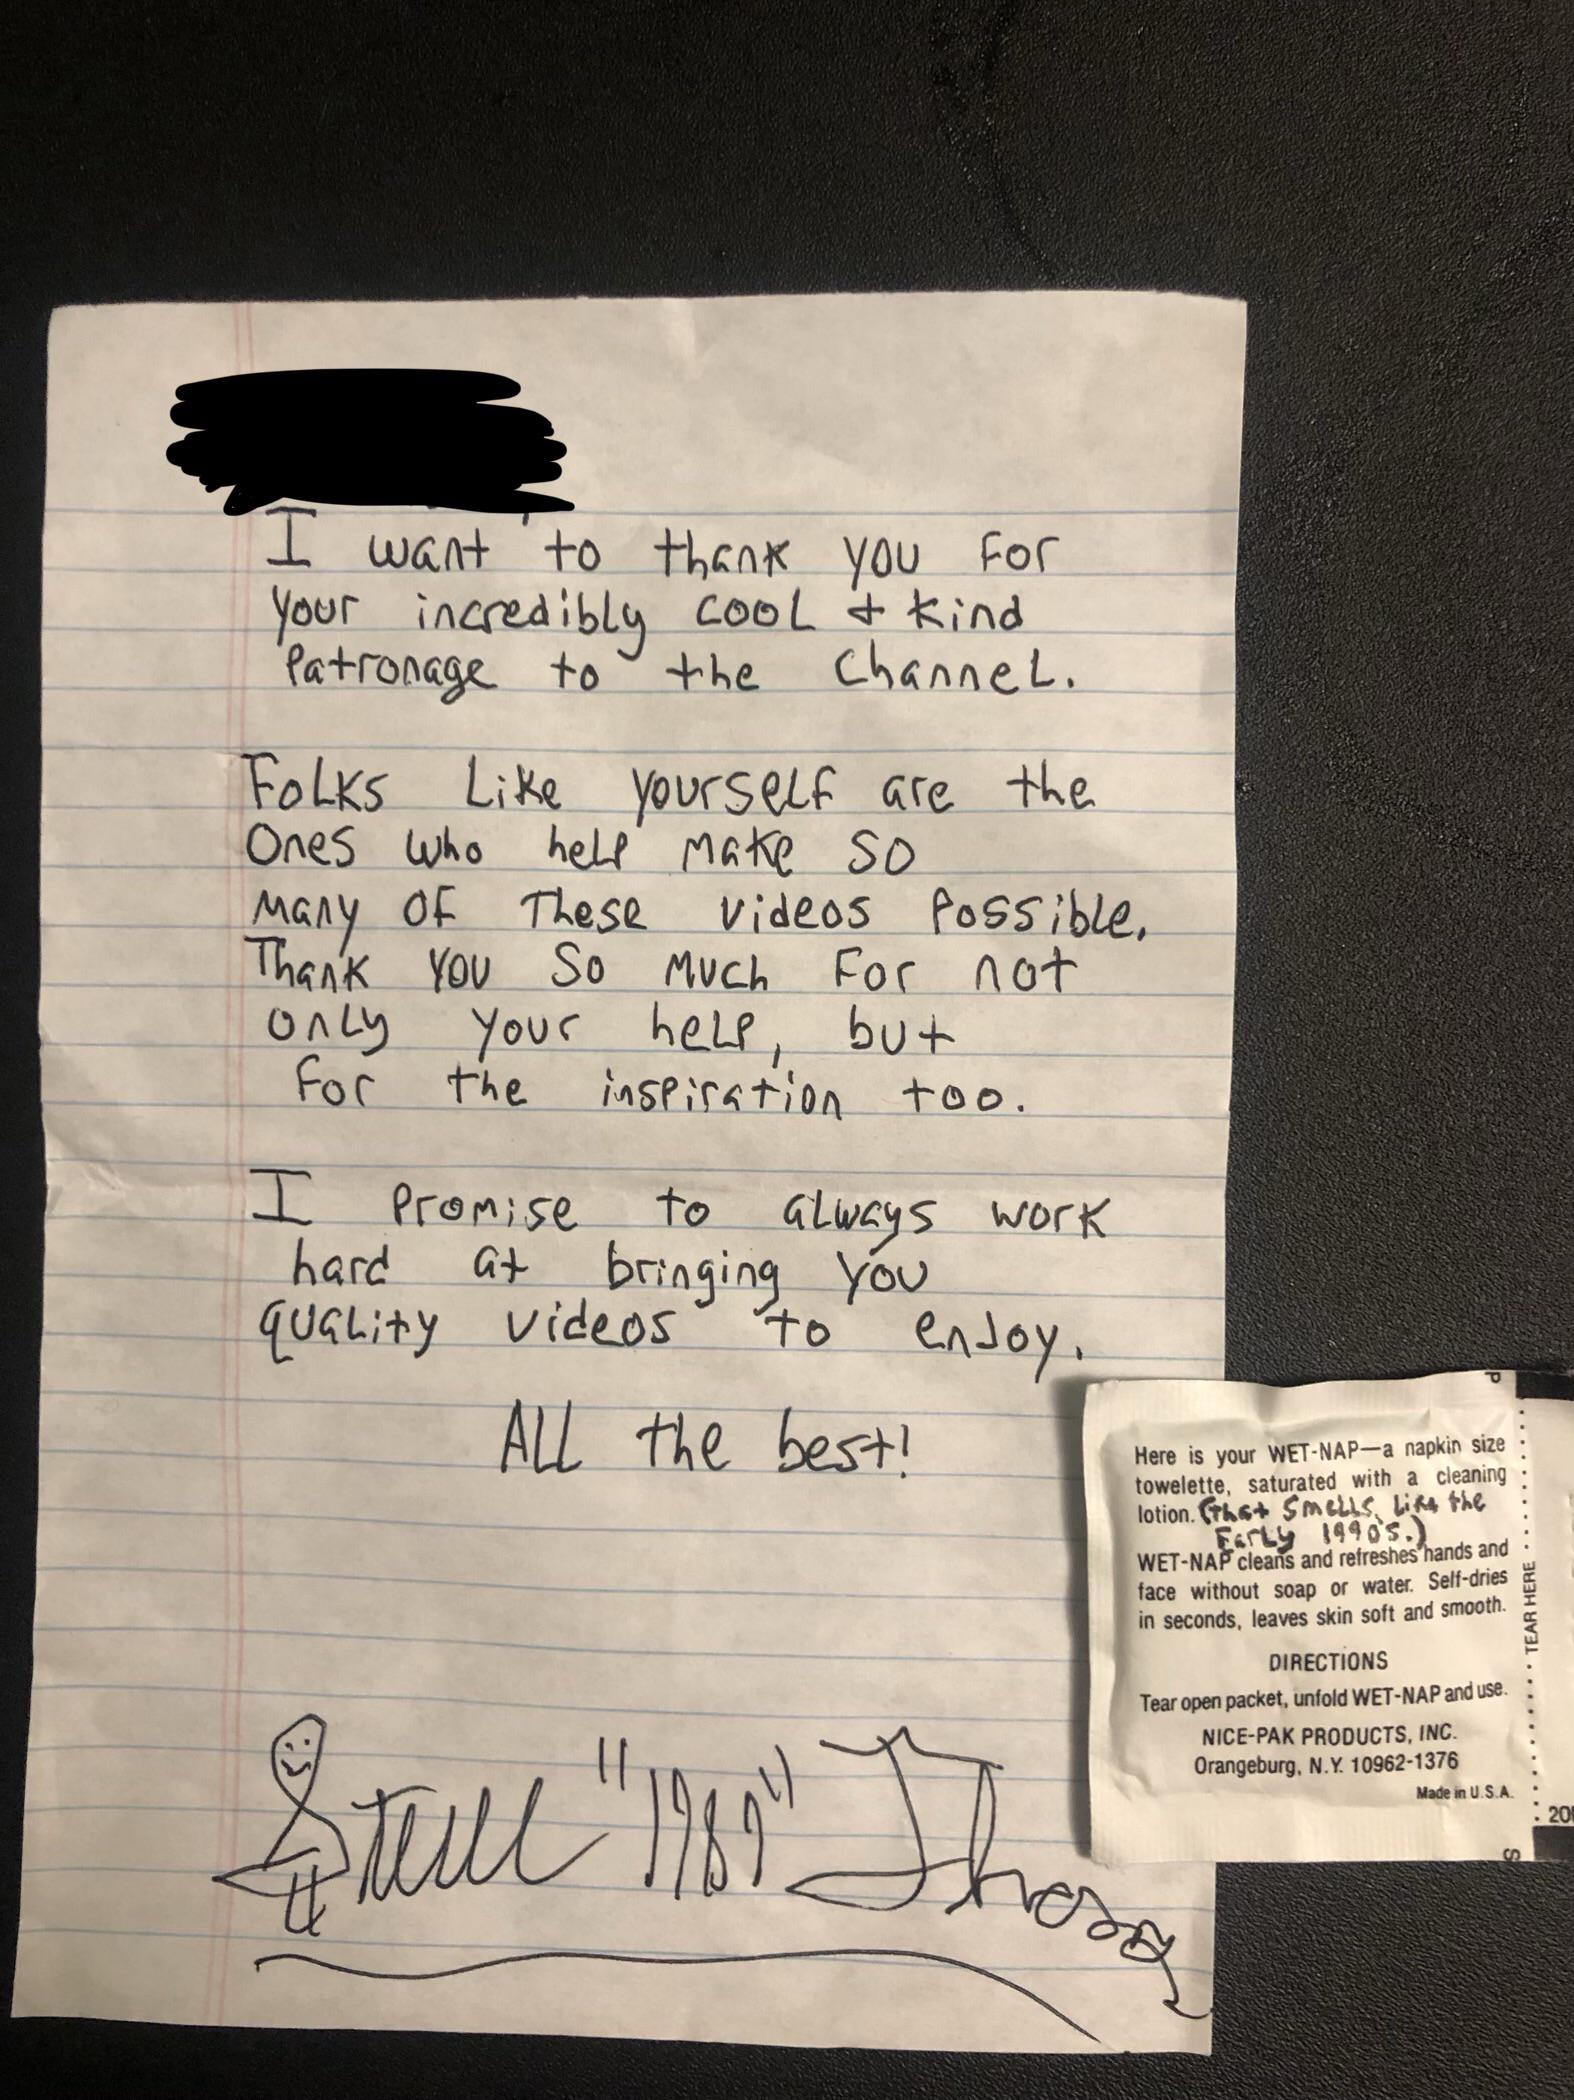 I want to thank you for
your incredibly cool & kind
Patronage to the Channel.
Folks Like yourself are the
Ones who help make so
many of These videos Possible.
Thank you so much for not
only your help, but
for the inspiration too.
I Promise to always work
hard at bringing you
quality videos to enjoy.
ALL the best!
"1989"
Here is your WET-NAP—a napkin size
towelette, saturated with a cleaning
lotion. (that smells like the
Early 1990's.)
WET-NAP cleans and refreshes hands and
face without soap or water. Self-dries
in seconds, leaves skin soft and smooth.
DIRECTIONS
Tear open packet, unfold WET-NAP and use.
NICE-PAK PRODUCTS, INC.
Orangeburg, N.Y. 10962-1376
Made in U.S.A.
TEAR HERE